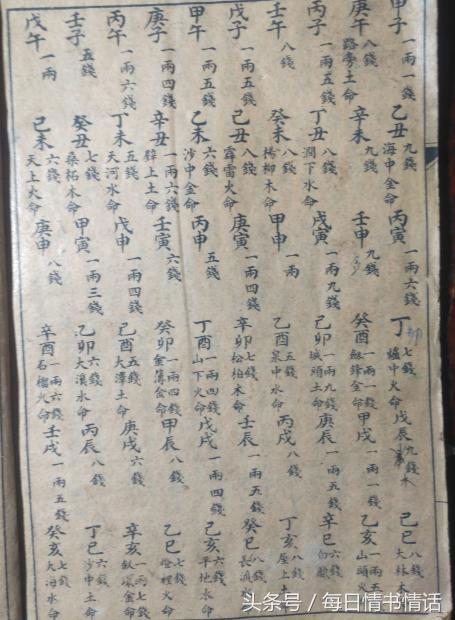 甲子 一兩一錢 乙丑 九錢 海中金命 丙寅 一兩六錢 丁卯 七錢 爐中火命 戊辰 九錢 木 己巳 八錢 大林木
庚午 八錢 路旁土命 辛未 九錢 壬申 九錢 癸酉 一兩一錢 劍鋒金命 甲戌 一兩一錢 乙亥 一兩五 山頭火
丙子 一兩五錢 丁丑 八錢 澗下水命 戊寅 一兩九錢 己卯 一兩九錢 城頭土命 庚辰 一兩五錢 辛巳 六錢 白
壬午 八錢 癸未 八錢 楊柳木命 甲申 一兩 乙酉 五錢 泉中水命 丙戌 八錢 丁亥 八錢 屋上
戊子 一兩五錢 己丑 八錢 霹靂火命 庚寅 一兩四錢 辛卯 七錢 松柏木命 壬辰 一兩五錢 癸巳 八錢 長流
甲午 一兩五錢 乙未 六錢 沙中金命 丙申 五錢 丁酉 一兩四錢 山下火命 戊戌 一兩四錢 己亥 六錢 平地水命
庚子 一兩四錢 辛丑 一兩六錢 壁上土命 壬寅 六錢 癸卯 一兩四錢 金簿金命 甲辰 八錢 乙巳 七錢 燈裡火命
丙午 一兩六錢 丁未 五錢 天河水命 戊申 一兩四錢 己酉 五錢 大澤土命 庚戌 六錢 辛亥 一兩七錢 釵環金命
壬子 五錢 癸丑 七錢 桑柘木命 甲寅 一兩三錢 乙卯 六錢 大溪水命 丙辰 八錢 丁巳 六錢 沙中土命
戊午 一兩 己未 六錢 天上火命 庚申 八錢 辛酉 一兩六錢 石榴火命 壬戌 一兩五錢 癸亥 七錢 大海水命
头条号 / 每日情书情话